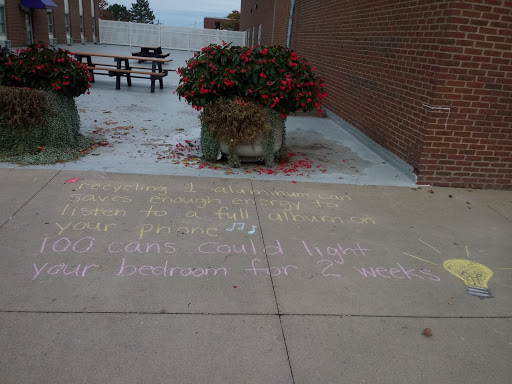 recycling 1 aluminum can
saves enough energy to
listen to a full album on
your phone
100 cans could light
your bedroom for 2 weeks